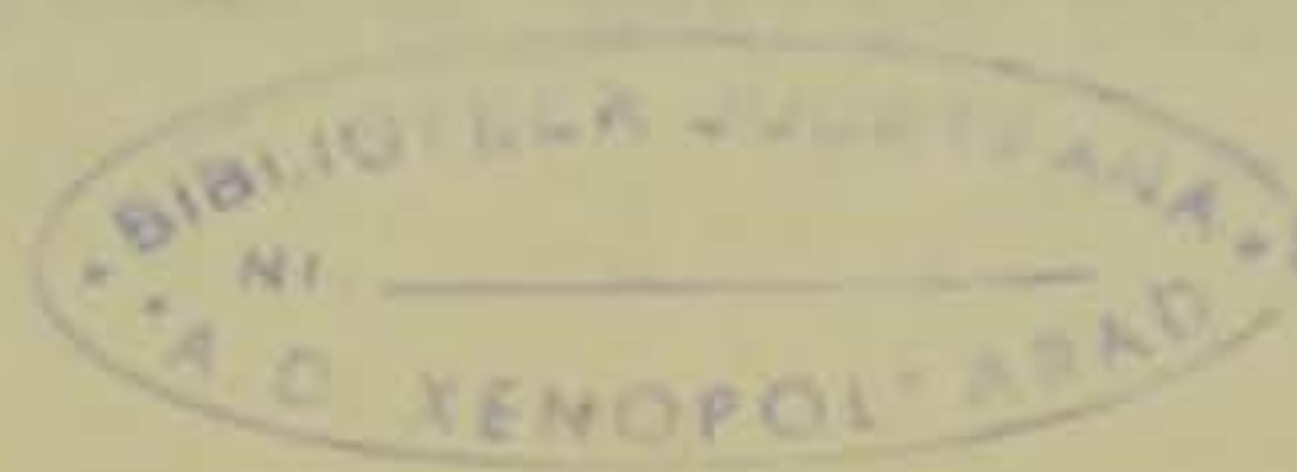 BIBLIOTECA JUDEȚEANĂ
Nr
"A. D. XENOPOL" ARAD